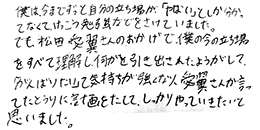 僕は、今まですっと自分の立ち場が「やばい」としか分かっ
てなくて、けっこう免るなどをさけていました。
でも、松田 愛翼さんのおかげで、僕の今の立ち場
をすべて理解し何かを引き出されたようがして、
がんばりたい気持ちが強くなり、愛翼さんが言っ
てたとうりに計画をたてて、しっかりやっていきたいと
思いました。